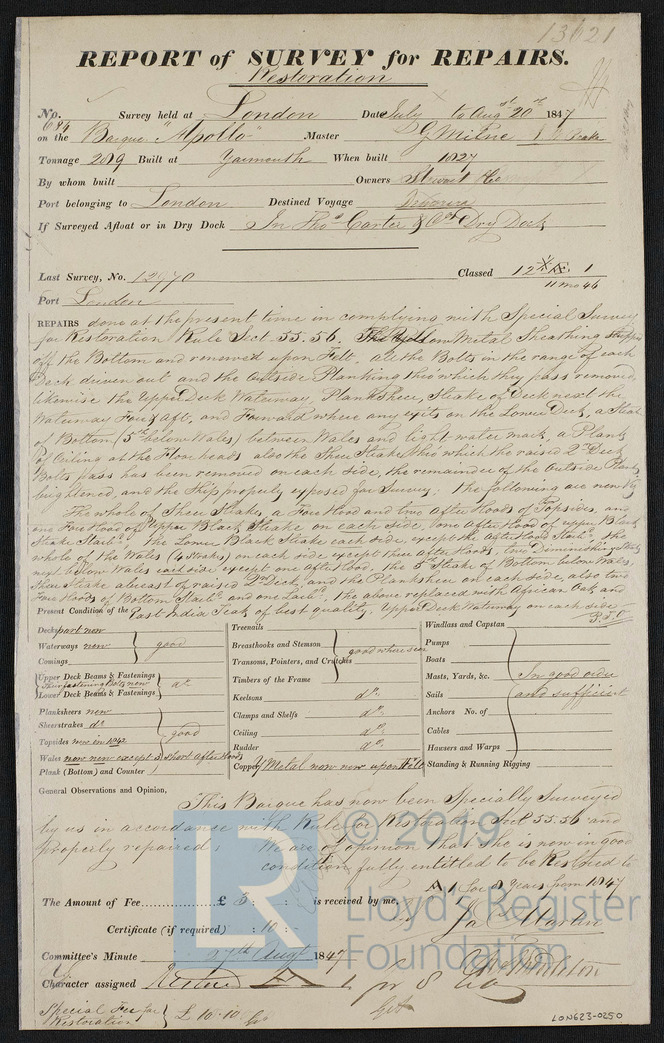 13621
REPORT of SURVEY for REPAIRS.
Restoration
No. 684 Survey held at London Date July to Augst 20th 1847
on the Barque "Apollo" Master G Milne
Tonnage 209 Built at Yarmouth When built 1827
By whom built Owners Stewart &Co
Port belonging to London Destined Voyage Demerara
If Surveyed Afloat or in Dry Dock In Thos Carter & Cos Dry Dock
Last Survey, No. 12970 Classed 12 Æ 1
11 mo 46
Port London
REPAIRS done at the present time in complying with Special Survey
for Restoration Rule Sect 55.56. The Yellow Metal Sheathing stripped
off the Bottom and renewed upon Felt. All the Bolts in the range of each
Deck driven out and the outside Planking thro' which they pass removed
likewise the Upper Deck Waterway, Planksheer, Strake of Deck next the
Waterway Fore & Aft, and Forward where any exits on the Lower Deck, a Strake
of Bottom (5th below Wales) between Wales and light water mark, a Plank
of Ceiling at the Floor heads also the Sheer Strake thro which the raised 2r Deck
Bolts pass has been removed on each side, the remainder of the Outside Plank
brightened, and the Ship properly exposed for Survey: the following are new Viz
The whole of Sheer Strakes, a Fore Hood and two After Hoods of Topsides, and
one Fore Hood of Upper Black Strake on each side, one After Hood of upper Black
Strake Starbd. the Lower Black Strake each side, except the After Hood Starbd. the
whole of the Wales (4 Strakes) on each side except three after Hoods, two Diminishing Strakes
next below Wales each side except one After Hood. The 5th Strake of Bottom below Wales,
Sheer Strake abreast of raised Qr Deck, and the Planksheer on each side, also two
Fore Hoods of Bottom Starbd and one Larbd, the above replaced with African Oak and
East India Teak of best quality, Upper Deck Waterway on each side
P.T.O
Present Condition of the
Decks part new
Waterways new
Comings
good
Upper Deck Beams & Fastenings
their fastening Bolts new
Lower Deck Beams & Fastenings
do
Planksheers new
Sheerstrakes do
Topsides new in part
good
Wales now new except 3 short after Hoods
Plank (Bottom) and Counter
Treenails
Breasthooks and Stemson
Transoms, Pointers, and Crutches
Timbers of the Frame
good where seen
Keelsons do
Clamps and Shelfs do
Ceiling do
Rudder do
Copper Y Metal now new upon Felt
Windlass and Capstan
Pumps
Boats
Masts, Yards, &c.
Sails
Anchors No. of
Cables
Hawsers and Warps
In good order
and sufficient
Standing & Running Rigging
General Observations and Opinion,
This Barque has now been Specially Surveyed
by us in accordance with Rule for Restoration Sect 55.56 and
Properly repaired: We are of opinion that she is now in good
condition, fully entitled to be Restored to
A 1 for 8 Years from 1847
The Amount of Fee £ 5 : : is received by me,
Jas Martin
Certificate (if required) : 10 : -
Committee's Minute 27th Augt 1847
Character assigned Restored A 1 for 8
Special Fee for
Restoration
£ 10.10
LON623-0250
LR
© 2019
Lloyd's Register
Foundation